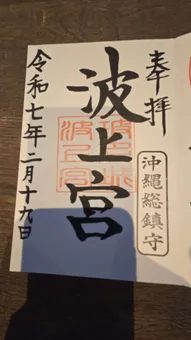 奉拝
沖縄総鎮守
波上宮
波上宮
令和七年二月十九日